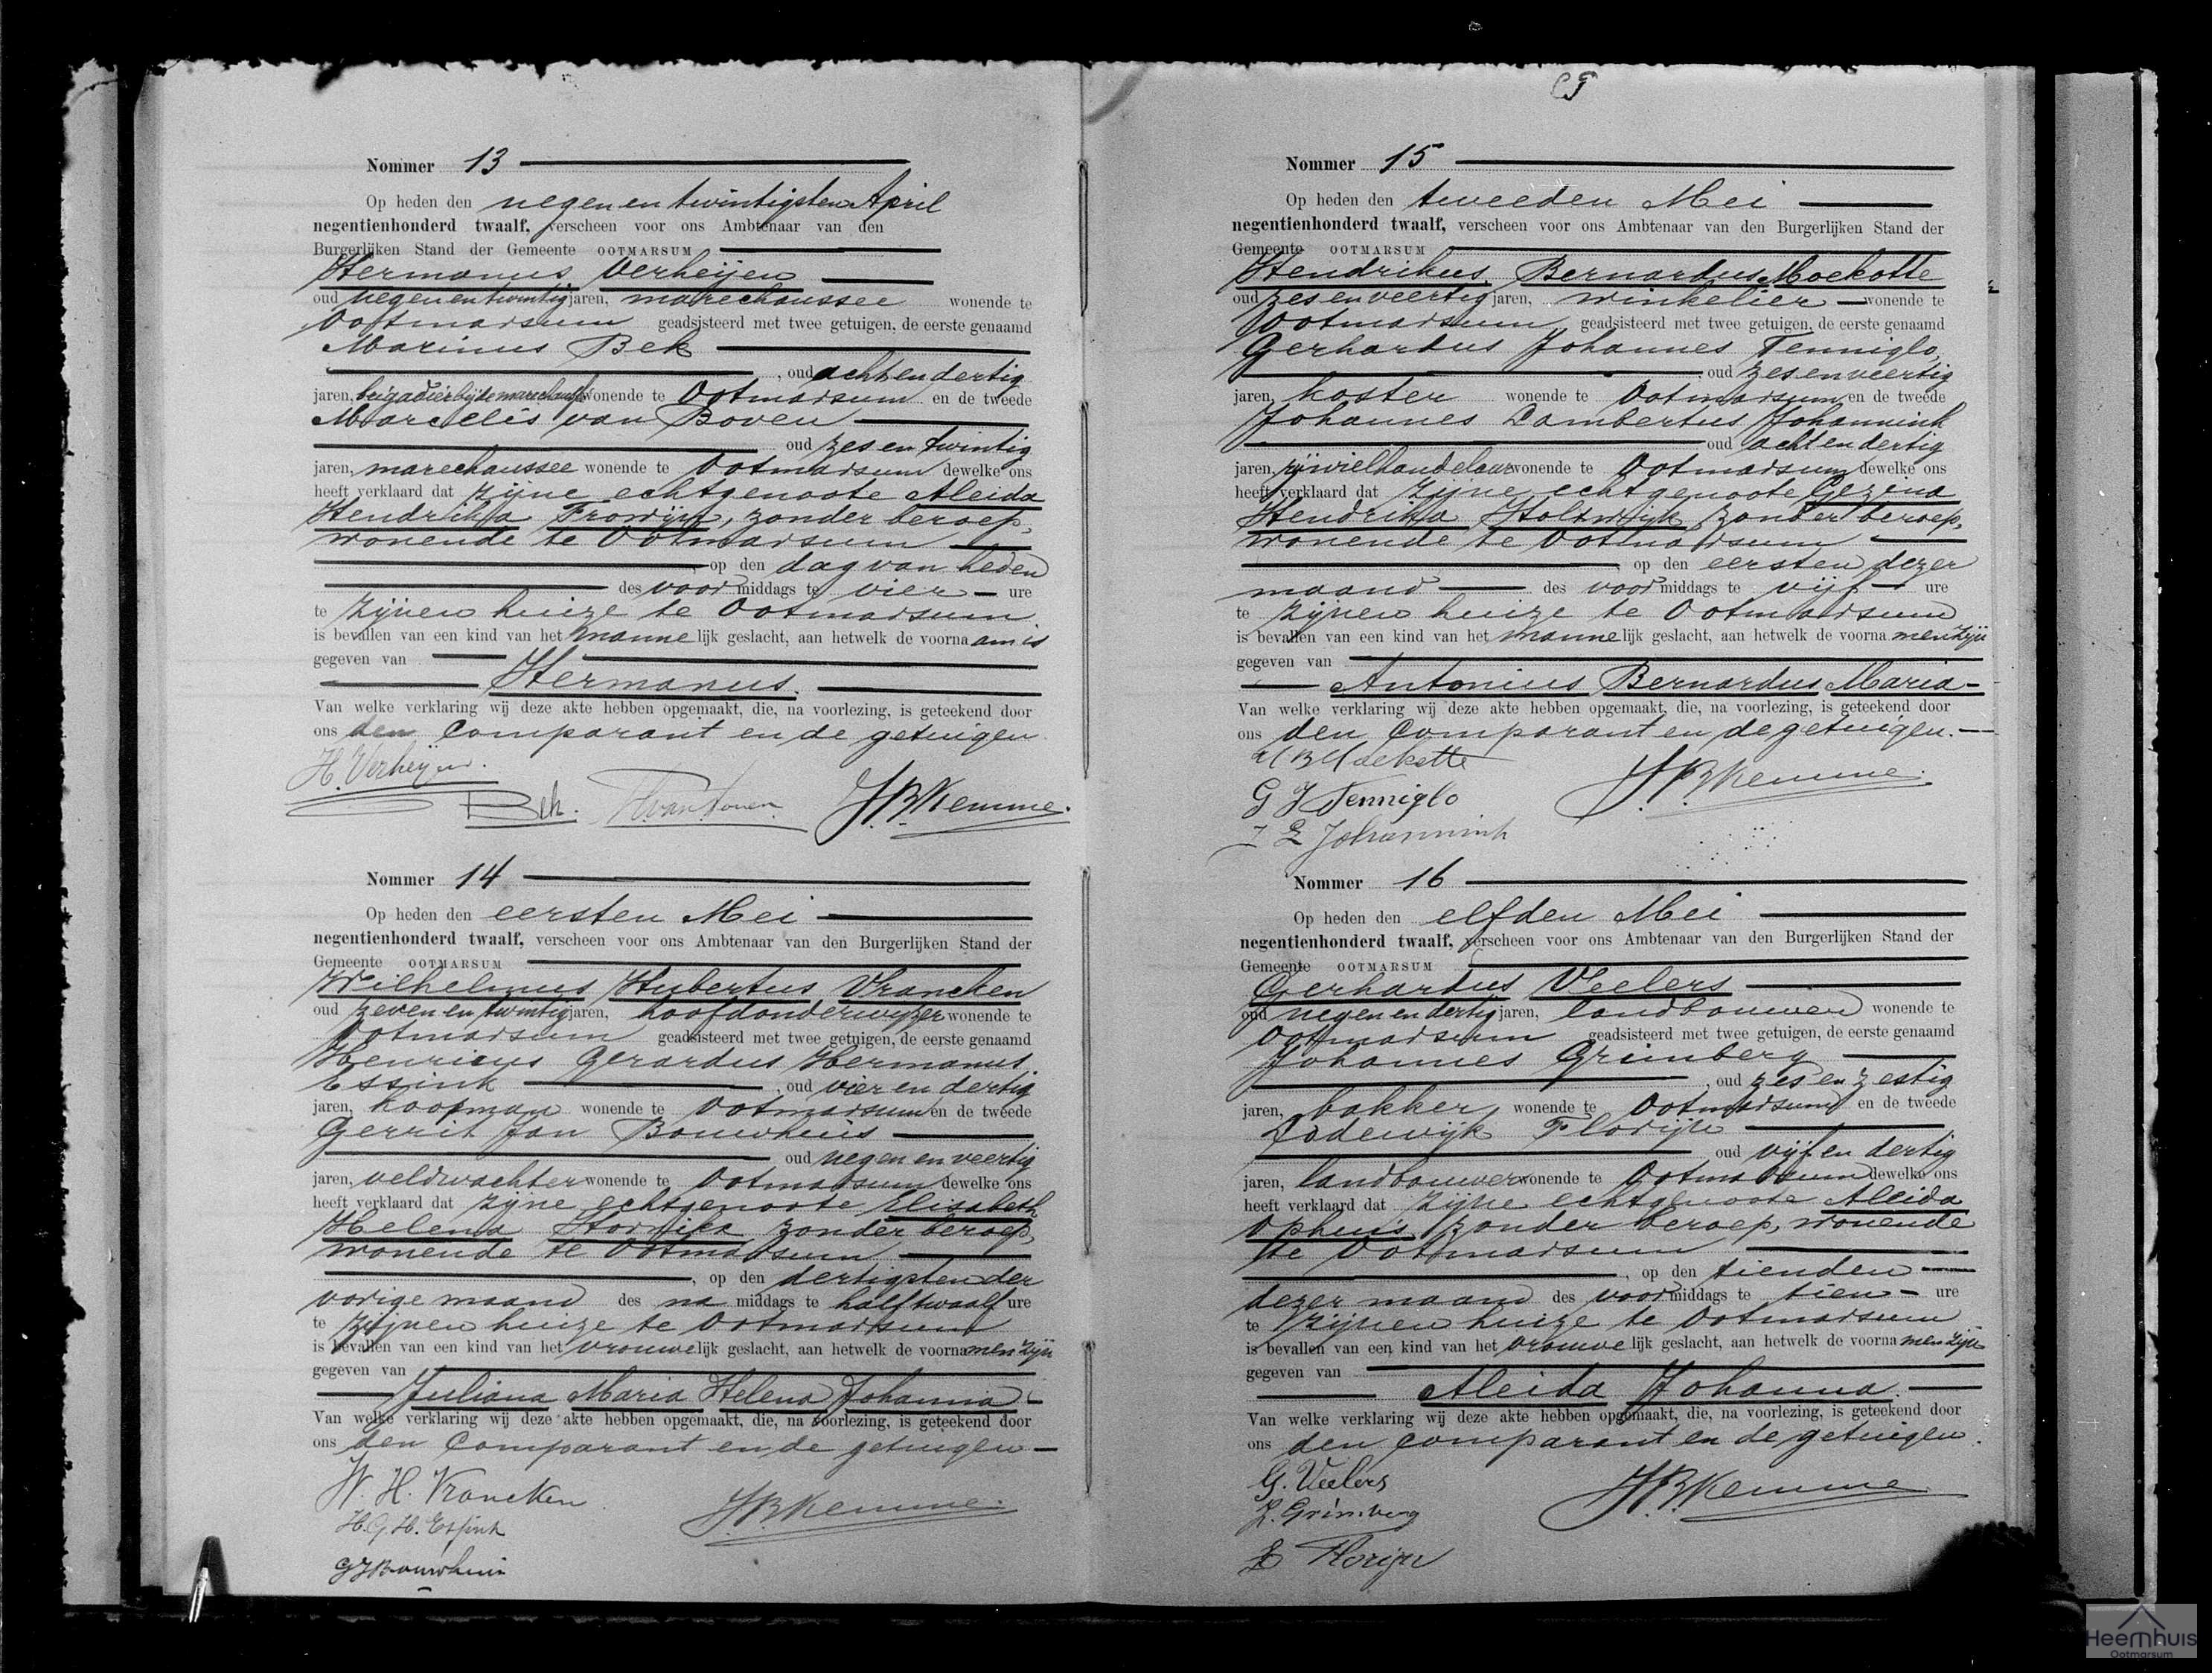 Nommer 13
Op heden den negenentwintigsten April
negentienhonderd twaalf, verscheen voor ons Ambtenaar van den
Burgerlijken Stand der Gemeente OOTMARSUM
Hermanus Verheijen
oud negenentwintig jaren, marechaussee wonende te
Ootmarsum geadsisteerd met twee getuigen, de eerste genaamd
Marinus Bek
, oud achtendertig
jaren, brigadier bij de marechaussee wonende te Ootmarsum en de tweede
Marcelis van Boven
oud zesentwintig
jaren, marechaussee wonende te Ootmarsum dewelke ons
heeft verklaard dat zijne echtgenoote Aleida
Hendrika Frowijn, zonder beroep,
wonende te Ootmarsum
, op den dag van heden
des voormiddags te vier ure
te zijnen huize te Ootmarsum
is bevallen van een kind van het mannelijk geslacht, aan hetwelk de voornaam is
gegeven van
Hermanus.
Van welke verklaring wij deze akte hebben opgemaakt, die, na voorlezing, is geteekend door
ons den comparant en de getuigen
H. Verheijen.
Bek. JBKemme.
Nommer 14
Op heden den eersten Mei
negentienhonderd twaalf, verscheen voor ons Ambtenaar van den Burgerlijken Stand der
Gemeente OOTMARSUM
Wilhelmus Hubertus Vrancken
oud zevenentwintig jaren, hoofdonderwijzer wonende te
Ootmarsum geadsisteerd met twee getuigen, de eerste genaamd
Henricus Gerardus Hermanus
Essink , oud vierendertig
jaren, koopman wonende te Ootmarsum en de tweede
Gerrit Jan Bouwhuis
oud negenenveertig
jaren, veldwachter wonende te Ootmarsum dewelke ons
heeft verklaard dat zijne echtgenoote Elisabeth
Helena zonder beroep,
wonende te Ootmarsum
, op den dertigsten der
vorige maand des namiddags te half twaalf ure
te zijnen huize te Ootmarsum
is bevallen van een kind van het vrouwelijk geslacht, aan hetwelk de voornamen zijn
gegeven van
Juliana Maria Helena Johanna
Van welke verklaring wij deze akte hebben opgemaakt, die, na voorlezing, is geteekend door
ons den comparant en de getuigen
W. H. Vrancken
H.G.H. Essink JBKemme.
GJBouwhuis
Nommer 15
Op heden den tweeden Mei
negentienhonderd twaalf, verscheen voor ons Ambtenaar van den Burgerlijken Stand der
Gemeente OOTMARSUM
Hendrikus Bernardus Moekotte
oud zesenveertig jaren, winkelier wonende te
Ootmarsum geadsisteerd met twee getuigen, de eerste genaamd
Gerhardus Johannes Tenniglo,
oud zesenveertig
jaren, koster wonende te Ootmarsum en de tweede
Johannes Lambertus Johannink
oud achtendertig
jaren, rijwielhandelaar wonende te Ootmarsum dewelke ons
heeft verklaard dat zijne echtgenoote Gezina
Hendrika Holtwijk zonder beroep,
wonende te Ootmarsum
, op den eersten dezer
maand des voormiddags te vijf ure
te zijnen huize te Ootmarsum
is bevallen van een kind van het mannelijk geslacht, aan hetwelk de voornamen zijn
gegeven van
Antonius Bernardus Maria
Van welke verklaring wij deze akte hebben opgemaakt, die, na voorlezing, is geteekend door
ons den comparant en de getuigen.
HBMoekotte
G J Tenniglo JBKemme.
J L Johannink
Nommer 16
Op heden den elfden Mei
negentienhonderd twaalf, verscheen voor ons Ambtenaar van den Burgerlijken Stand der
Gemeente OOTMARSUM
Gerhardus Veelers
oud negenendertig jaren, landbouwer wonende te
Ootmarsum geadsisteerd met twee getuigen, de eerste genaamd
Johannes Grimberg
, oud zesenzestig
jaren, bakker, wonende te Ootmarsum en de tweede
Lodewijk Florijn
oud vijfendertig
jaren, landbouwer wonende te Ootmarsum dewelke ons
heeft verklaard dat zijne echtgenoote Aleida
Ophuis zonder beroep, wonende
te Ootmarsum
, op den tienden
dezer maand des voormiddags te tien ure
te zijnen huize te Ootmarsum
is bevallen van een kind van het vrouwelijk geslacht, aan hetwelk de voornamen zijn
gegeven van
Aleida Johanna.
Van welke verklaring wij deze akte hebben opgemaakt, die, na voorlezing, is geteekend door
ons den comparant en de getuigen.
G. Veelers
Grimberg JBKemme
L Florijn
Heemhuis
Ootmarsum